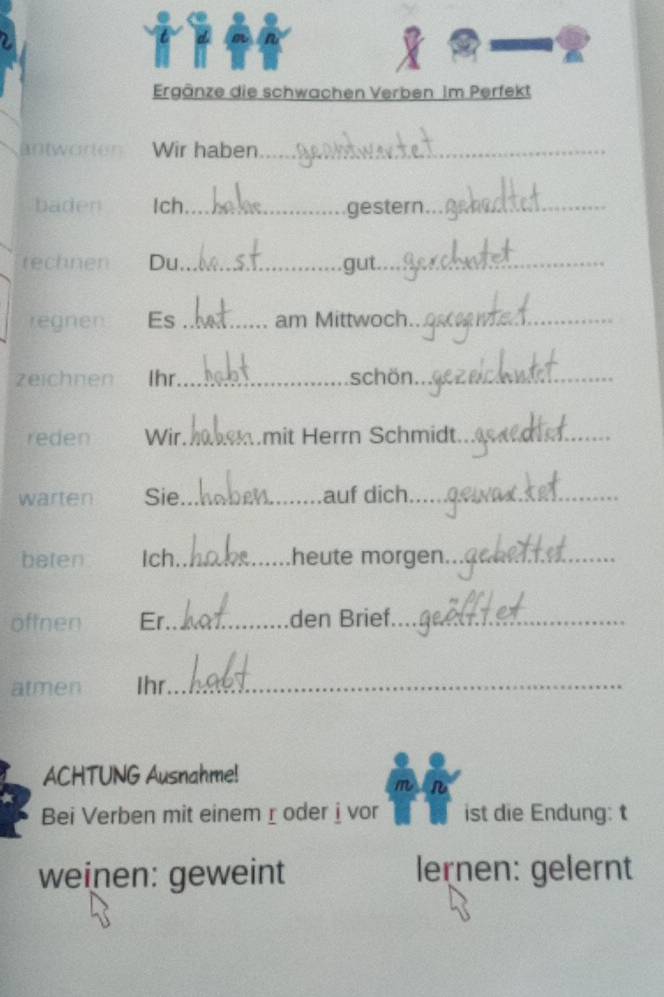 n
t d m n
Ergänze die schwachen Verben im Perfekt
antworten Wir haben......geantwortet..............................
baden Ich....habe..................gestern...gebadtet..........
rechnen Du...ha st..............gut....gerchntet..............
regnen Es ..hat...... am Mittwoch..geregntet..............
zeichnen Ihr....habt..................schön...gezeichntet.........
reden Wir.haben..mit Herrn Schmidt...geredtet.......
warten Sie...haben........auf dich.....gewartet.........
beten Ich..habe......heute morgen...gebettet........
öffnen Er..hat...........den Brief....geöfftet................
atmen Ihr...habt.......................................................
ACHTUNG Ausnahme!
Bei Verben mit einem r oder i vor m n ist die Endung: t
weinen: geweint lernen: gelernt